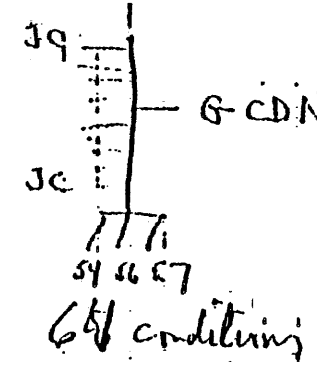 J9
G-CDN
JC
54 56 57
conditions